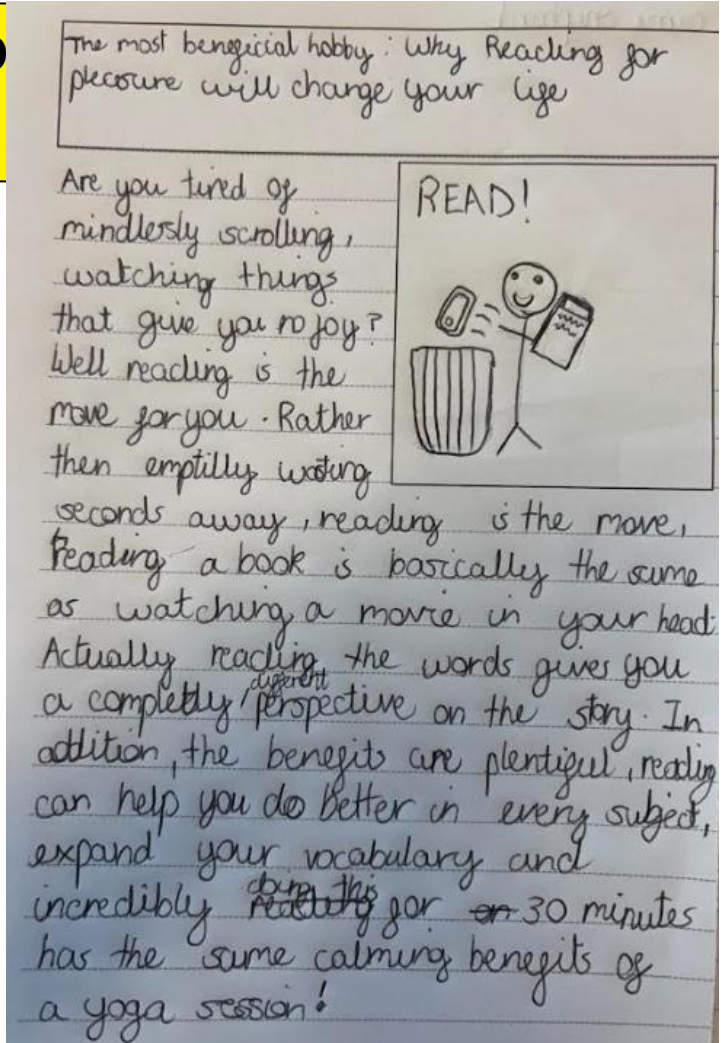 The most beneficial hobby: Why Reading for
pleasure will change your life
Are you tired of
mindlessly scrolling,
watching things
that give you no joy?
Well reading is the
move for you. Rather
then emptilly wasting
seconds away, reading is the move,
Reading a book is basically the same
as watching a movie in your head.
Actually reading the words gives you
a completly different perspective on the story. In
addition, the benefits are plentiful, reading
can help you do better in every subject,
expand your vocabulary and
incredibly doing this for 30 minutes
has the same calming benefits of
a yoga session!
READ!